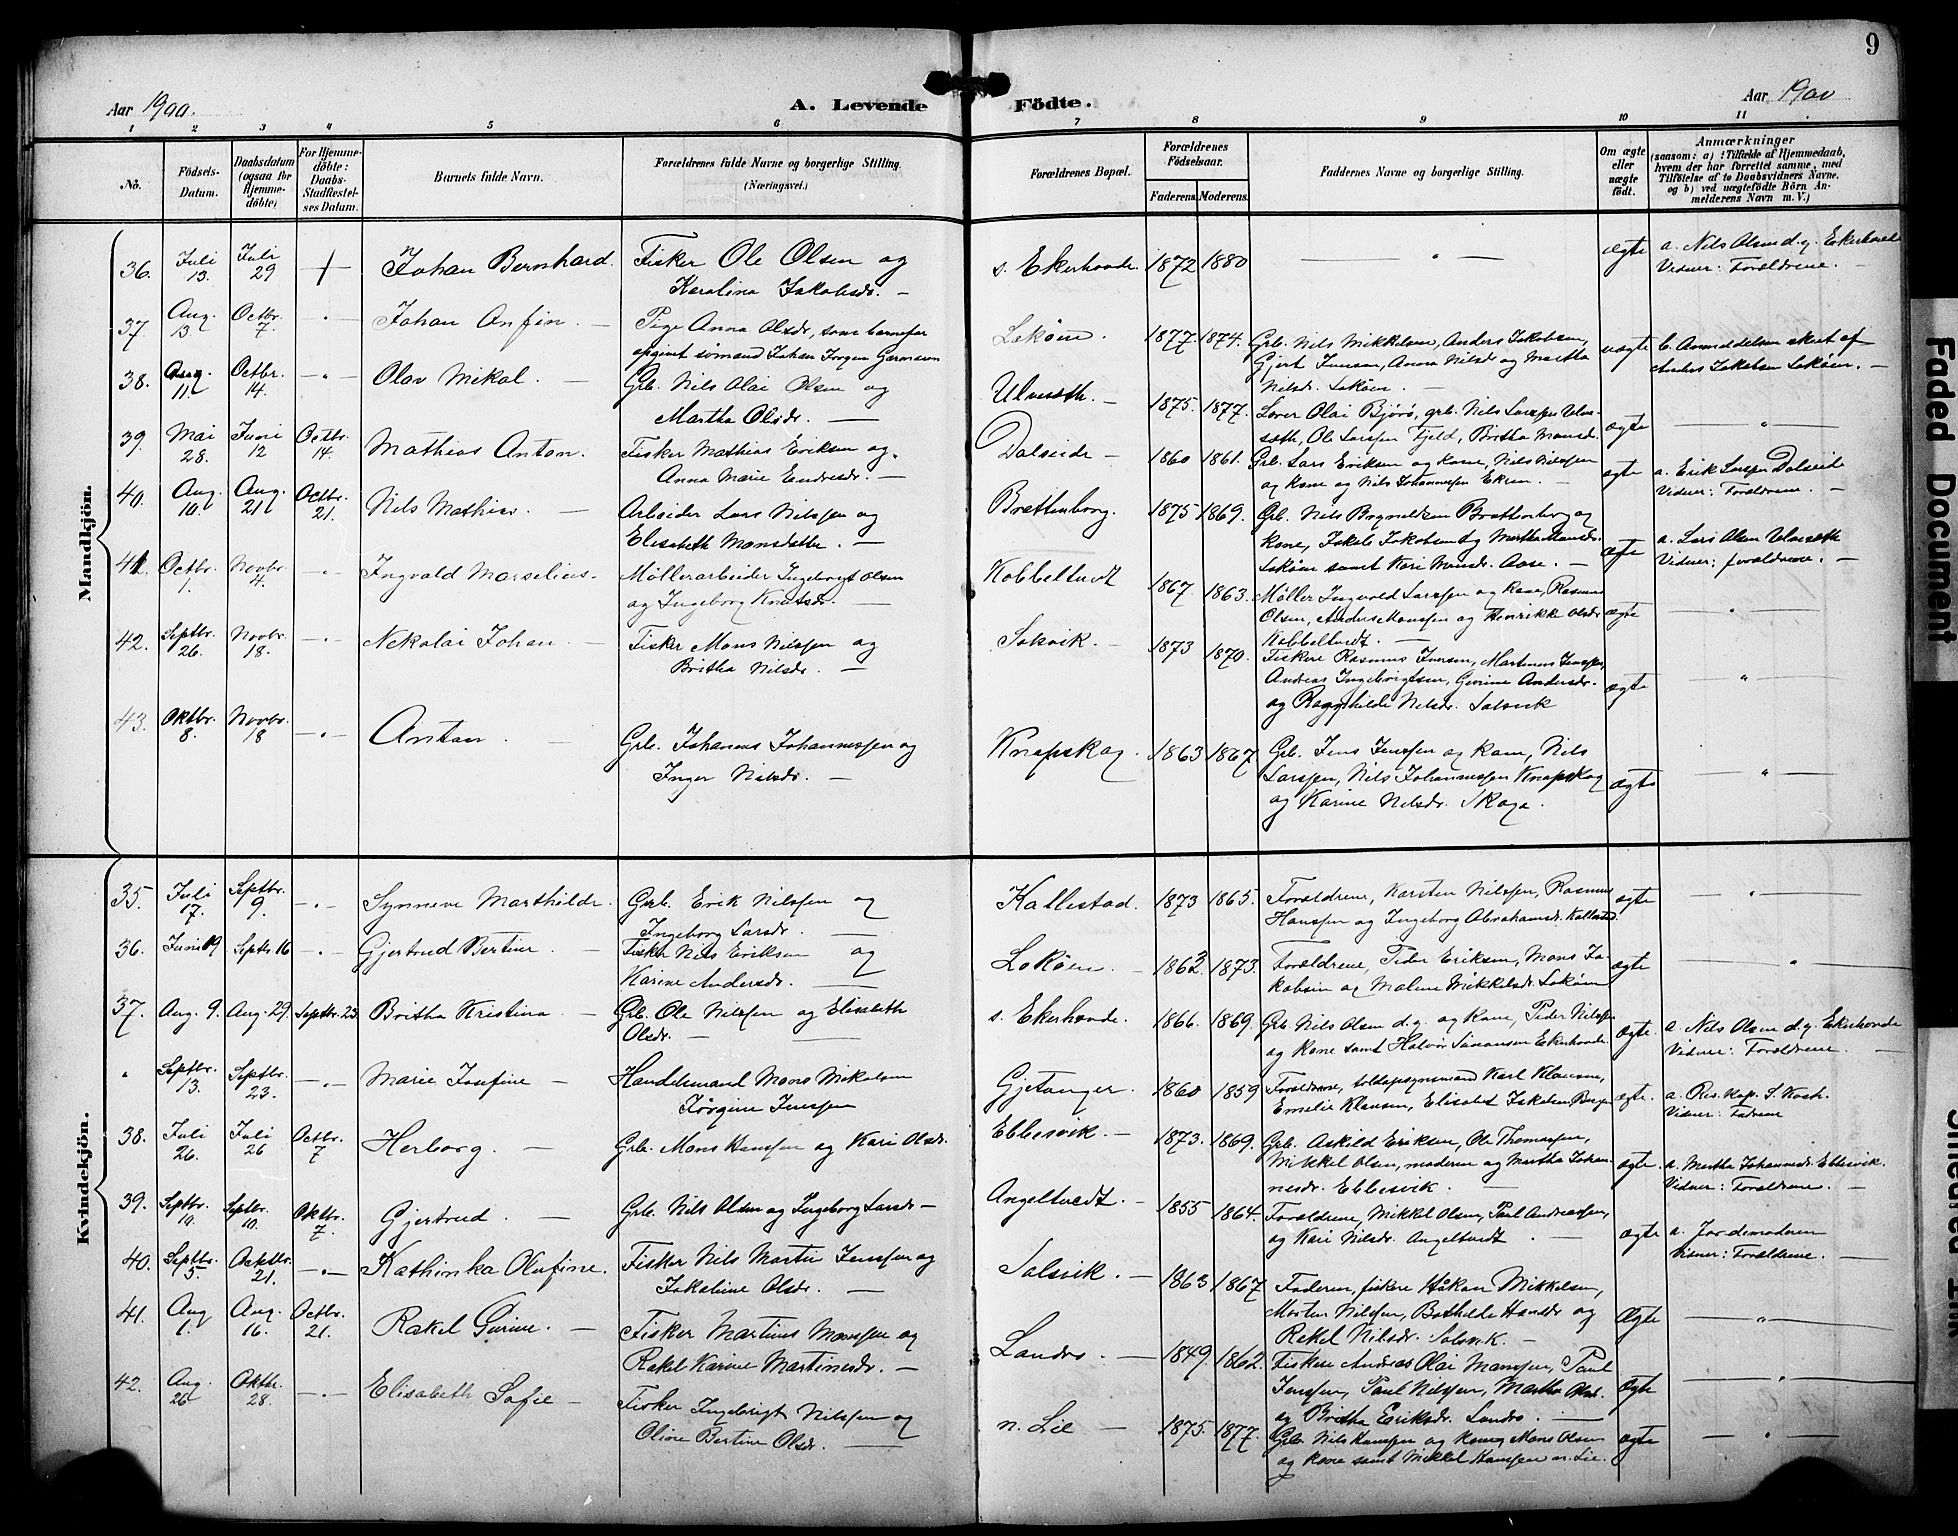 9
Aar 1900.
A. Levende
Födte.
Aar 1900
1 2 3 4 5 6 7 8 9 10 11
No.
Födsels-
Datum.
Daabsdatum
(ogsaa for
Hjemme-
döbte)
For Hjemme-
döbte:
Daabs-
Stadfæstel-
ses Datum.
Barnets fulde Navn.
Forældrenes fulde Navne og borgerlige Stilling.
(Næringsvei.)
Forældrenes Bopæl.
Forældrenes
Födselsaar.
Faderens. Moderens.
Faddernes Navne og borgerlige Stilling.
Om ægte
eller
uægte
födt.
Anmærkninger
(saasom: a) i Tilfælde af Hjemmedaab,
hvem der har forrettet samme, med
Tilföielse af to Daabsvidners Navne,
og b) ved uægtefödte Börn An-
melderens Navn m. V.)
Mandkjön.
36. Juli 13. Juli 29 Johan Bernhard. Fisker Ole Olsen og
Karolina Jakobsdr. —
s. Ekerhovde. 1872 1880 — " — ægte a. Nils Olsen d.y. Ekerhovde
Vidner: Forældrene. —
37. Aug. 13. Octbr. 7. — " — Johan Anfin. — Pige Anna Olsdr, som barnefar
opgivet sømand Johan Jørgen Garmann
Lokøen. 1877. 1874. Grb. Nils Mikkelsen, Anders Jakobsen,
Gjert Jensen, Anna Nilsdr og Martha
Nilsdr. Lokøen. — uægte b. Anmeldelsen skeet af
Anders Jakobsen Lokøen. —
38. Aug. 11 Octbr. 14. — " — Olav Mikal. — Grb. Nils Olai Olsen og
Martha Olsdr. —
Ulvesæth. — 1875. 1877. Lærer Olai Bjørø, grb. Nils Larssen Ulve-
sæth, Ole Larssen Fjeld, Britha Monsdr. ægte — " —
39. Mai 28. Juni 12 Octbr. 14. Mathias Anton. Fisker Mathias Eriksen og
Anna Marie Endresdr. —
Dalseide — 1860 1861. Grb. Lars Eriksen og kone, Nils Nilssen
og kone og Nils Johannessen Ekren. — ægte a. Erik Larssen Dalseide
Vidner: Forældrene. —
40. Aug. 10. Aug. 21 Octbr. 21. Nils Mathias. — Arbeider Lars Nilssen og
Elisabeth Monsdatter. —
Brattenborg. 1875 1869. Grb. Nils Brynildsen Brattenborg og
kone, Jakob Jakobsen og Martha Hansdr.
Lokøen samt Kari Monsdr. Aase. — ægte a. Lars Olsen Ulvesæth
Vidner: forældrene. —
41. Octbr. 1. Novbr. 4. — " — Ingvald Marselius. Møllerarbeider Ingebrigt Olsen
og Ingeborg Knutsdr. —
Kobbeltvedt 1867. 1863. Møller Ingvald Larssen og kone, Rasmus
Olsen, Anders Monssen og Henrikke Olsdr
Kobbeltvedt. — ægte — " —
42. Septbr. 26. Novbr. 18. — " — Nekolai Johan — Fisker Mons Nilssen og
Britha Nilsdr. —
Solsvik. — 1873 1870. Fiskere Rasmus Iversen, Martinus Jenssen,
Andreas Ingebrigtsen, Gurine Andersdr.
og Ragnhilde Nilsdr. Solsvik ægte — " —
43. Oktbr. 8. Novbr. 18 — " — Anton. — Grb. Johannes Johannessen og
Inger Nilsdr. —
Knapskog. 1863 1867. Grb. Jens Jenssen og kone, Nils
Larssen, Nils Johannessen Knapskog
og Karine Nilsdr. Skoge. ægte — " —
Kvindekjön.
35. Juli 17. Septbr. 9. — " — Synneve Marthilde. Grb. Erik Nilssen og
Ingeborg Larsdr. —
Kallestad. 1873 1865. Forældrene, Karsten Nilssen, Rasmus
Hanssen og Ingeborg Abrahamsdr. Kallestad. ægte — " —
36. Juni 19 Septr 16 — " — Gjertrud Bertine — Fisker Nils Eriksen og
Karine Andersdr. —
Lokøen. — 1862 1873. Forældrene, Peder Eriksen, Mons Ja-
kobsen og Malene Mikkelsdr. Lokøen ægte — " —
37. Aug. 9. Aug. 29. Septbr. 23 Britha Kristina — Grb. Ole Nilssen og Elisabeth
Olsdr. —
s. Ekerhovde. 1866. 1869. Grb. Nils Olsen d.y. og kone, Peder Nilssen
og kone samt Halvor Simonsen Ekerhovde. ægte. a. Nils Olsen d.y. Ekerhovde
Vidner: Forældrene. —
" Septbr. 13. Septbr. 23. — " — Marie Josefine — Handelsmand Mons Mikalsen
Jørgine Jenssen
Gjetanger. 1860 1859 Forældrene, toldopsynsmand Karl Klausen,
Emelie Klausen, Elisabet Jakobsen Bergen ægte. a. Res. kap. S. Koch.
Vidner: Fadrene
38. Juli 26. Juli 26 Octbr. 7 Herborg. — Grb. Mons Hanssen og Kari Olsdr.
Ebbesvik. — 1873. 1869. Grb. Askild Eriksen, Ole Thomassen,
Mikkel Olsen, moderen og Martha Johan-
nesdr. Ebbesvik. — ægte. a. Martha Johannesdr. Ebbesvik.
Vidner: Forældrene. —
39. Septbr. 19. Septbr. 10. Oktbr. 7. Gjertrud. — Grb. Nils Olsen og Ingeborg Larsdr —
Angeltvedt. — 1855 1864. Forældrene, Mikkel Olsen, Paul Andreassen,
og Kari Nilsdr. Angeltvedt. — ægte a. Jordemoderen
Vidner: Forældrene. —
40. Septbr. 5. Octbr. 21. — " — Kathinka Olufine. Fisker Nils Martin Jenssen og
Jakobine Olsdr. —
Solsvik. — 1863 1867. Faderen, fiskere Håkon Mikkelsen,
Morten Nilssen, Bothilde Hansdr og
Rakel Nilsdr. Solsvik. — Ægte — " —
41. Aug 1. Aug. 16. Octbr. 21. Rakel Gurine. — Fisker Martinus Monssen og
Rakel Karine Martinesdr. —
Landro. — 1849. 1862. Fiskere Andreas Olai Monssen, Paul
Jenssen, Paul Nilssen, Martha Olsdr.
og Britha Eriksdr. Landro. — Ægte — " —
42. Aug. 26 Oktbr. 28. — " — Elisabeth Sofie — Fisker Ingebrigt Nilssen og
Oline Bertine Olsdr. —
n. Lie — 1875. 1877. Grb. Nils Hanssen og kone, Mons Olsen
og kone samt Mikkel Hanssen n. Lie. ægte — " —
Faded Document